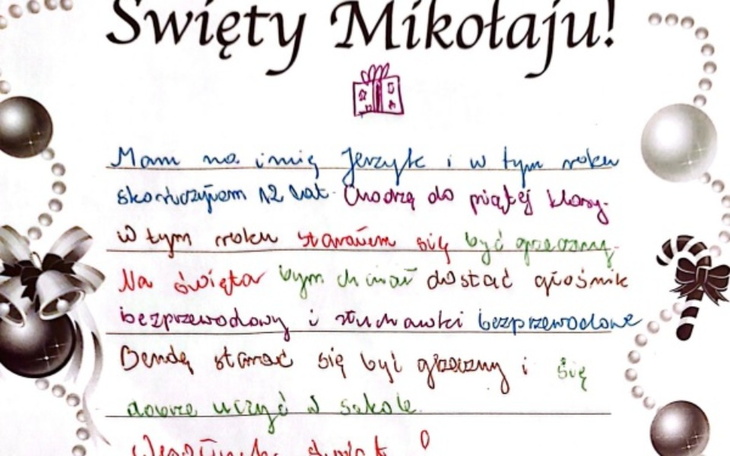 Święty Mikołaju!
Mam na imię Jerzyk i w tym roku
skończyłem 12 lat. Chodzę do piątej klasy.
W tym roku starałem się być grzeczny.
Na święta bym chciał dostać głośnik
bezprzewodowy i słuchawki bezprzewodowe
Bendę starać się być grzeczny i się
dobrze uczyć w szkole.